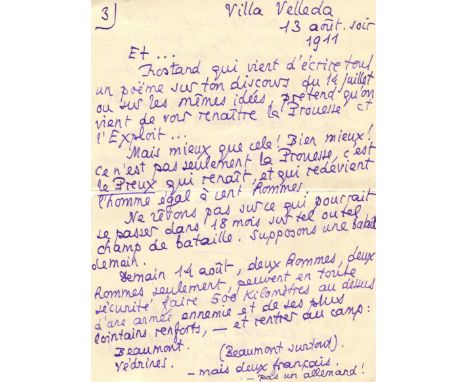 3)
Villa Velleda
13 août. soir
1911
Et...
Rostand qui vient d'écrire tout
un poème sur ton discours du 14 juillet
ou sur les mêmes idées, prétend qu'on
vient de voir renaître la Prouesse et
l'Exploit...
Mais mieux que cela! Bien mieux!
Ce n'est pas seulement la Prouesse, c'est
le Preux qui renaît, et qui redevient
l'homme égal à cent hommes.
Ne rêvons pas sur ce qui pourrait
se passer dans 18 mois sur tel ou tel
champ de bataille. Supposons une bataille
demain.
Demain 14 août, deux hommes, deux
hommes seulement, peuvent en toute
sécurité faire 500 kilomètres au dessus
d'une armée ennemie et de ses plus
lointains renforts, — et rentrer au camp:
Beaumont. (Beaumont surtout).
Védrines.
— mais deux français.
— pas un allemand!